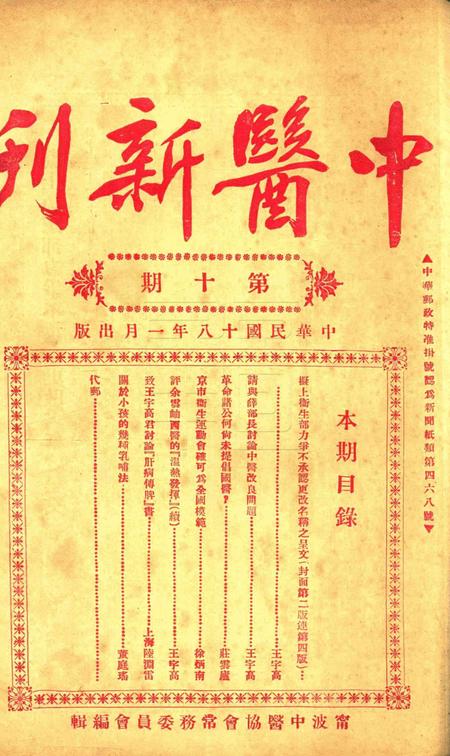 中醫新刊
第十期
中華民國十八年一月出版
▲中華郵政特准掛號認爲新聞紙類第四六八號▼
本期目錄
擬上衛生部力爭不承認更改名稱之呈文(封面第二版連第四版)…王宇高
請與薛部長討論中醫改良問題…王宇高
革命諸公何尙未提倡國醫?…莊雲廬
京市衛生運動會確可爲全國模範…徐炳南
評余雲岫西醫的『溫熱發揮』(續)…王宇高
致王宇高君討論『肝病傳脾』書…上海陸淵雷
關於小孩的幾種乳哺法…董庭瑤
代郵…
甯波中醫協會常務委員會編輯